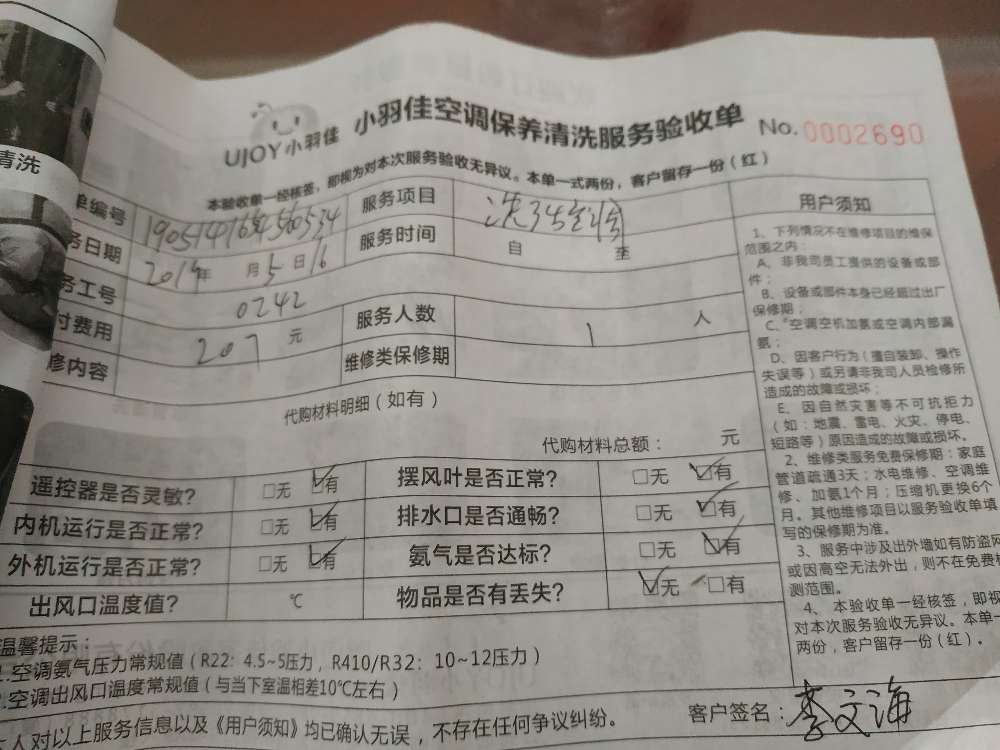 清洗
UJOY小羽佳 小羽佳空调保养清洗服务验收单 No.0002690
本验收单一经核签，即视为对本次服务验收无异议。本单一式两份，客户留存一份（红）
单编号 服务项目
务日期 2019年 月5日16 服务时间 自 至
务工号 0242
付费用 207 元 服务人数 1 人
修内容 维修类保修期
代购材料明细（如有）
代购材料总额： 元
遥控器是否灵敏? □无 □有 摆风叶是否正常? □无 □有
内机运行是否正常? □无 □有 排水口是否通畅? □无 □有
外机运行是否正常? □无 □有 氨气是否达标? □无 □有
出风口温度值? ℃ 物品是否有丢失? □无 □有
温馨提示：
1.空调氨气压力常规值（R22：4.5~5压力，R410/R32：10~12压力）
2.空调出风口温度常规值（与当下室温相差10℃左右）
人对以上服务信息以及《用户须知》均已确认无误，不存在任何争议纠纷。 客户签名：李文海
用户须知
1、下列情况不在维修项目的维保
范围之内：
A、非我司员工提供的设备或部
件；
B、设备或部件本身已经超过出厂
保修期；
C、空调空机加氨或空调内部漏
氨；
D、因客户行为（擅自装卸、操作
失误等）或另请非我司人员检修所
造成的故障或损坏；
E、因自然灾害等不可抗拒力
（如：地震、雷电、火灾、停电、
短路等）原因造成的故障或损坏。
2、维修类服务免费保修期：家庭
管道疏通3天；水电维修、空调维
修、加氨1个月；压缩机更换6个
月。其他维修项目以服务验收单填
写的保修期为准。
3、服务中涉及出外墙如有防盗网
或因高空无法外出，则不在免费检
测范围。
4、本验收单一经核签，即视
对本次服务验收无异议。本单一
两份，客户留存一份（红）。